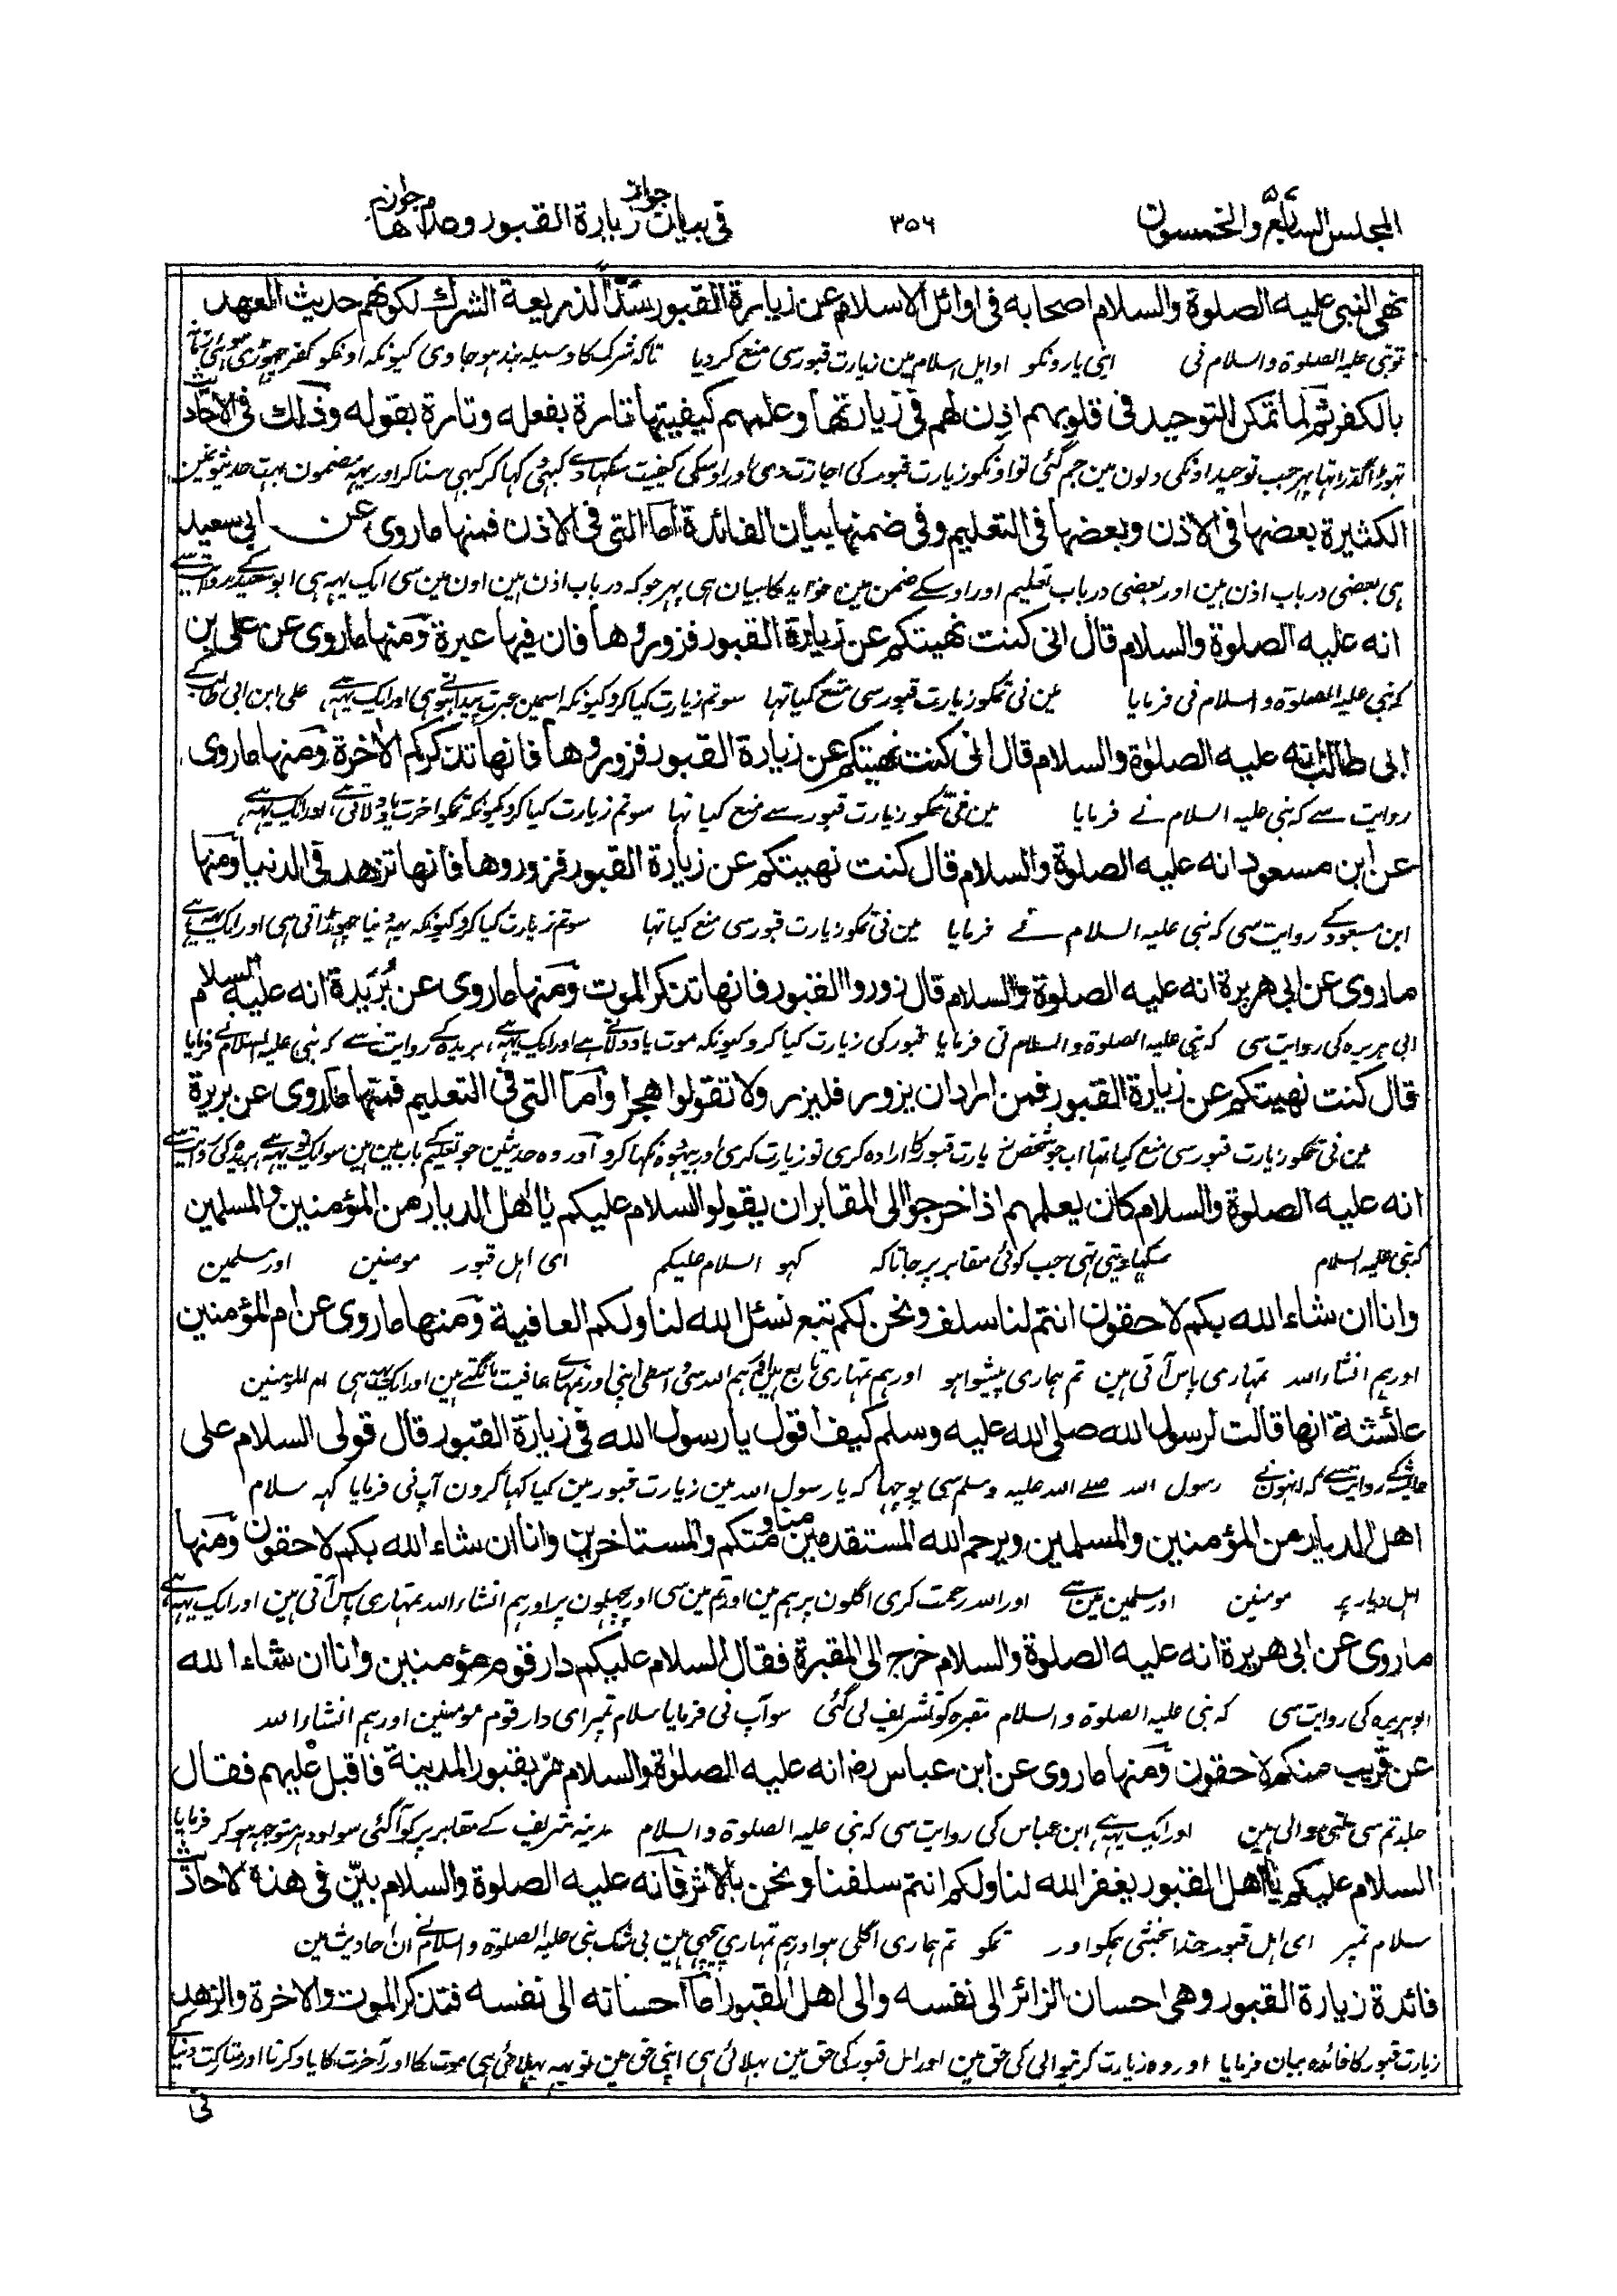 المجلس السابع والخمسون ٥٧
٣٥٦
فى بيان جواز زيارة القبور وعدم جوازها
نهى النبى عليه الصلوة والسلام اصحابه فى اوائل الاسلام عن زيارة القبور سدّا لذريعة الشرك لكونهم حديث العهد
تو نبی علیہ الصلوۃ والسلام نی اپنی یارونکو اوایل اسلام مین زیارت قبور سی منع کردیا تاکہ شرک کا وسیلہ بند ہو جاوی کیونکہ اونکو کفر چھوڑی ہوئی
بالكفر ثم لما تمكن التوحيد فى قلوبهم اذن لهم فى زيارتها وعلمهم كيفيتها تارة بفعله وتارة بقوله وذلك فى الاحاديث
تہوڑا گذرا تہا پہر جب توحید اونکی دلون مین جم گئی تو اونکو زیارت قبور کی اجازت دی اور اوسکی کیفیت سکہادی کبہی کہا کر کبہی سنا کر اور یہہ مضمون بہت حدیثونمین
الكثيرة بعضها فى الاذن وبعضها فى التعليم وفى ضمنها بيان الفائدة اما التى فى الاذن فمنها ماروى عن ابى سعيد
ہی بعضی درباب اذن ہین اور بعضی درباب تعلیم اور اوسکے ضمن مین فواید کا بیان ہی پہر جو کہ درباب اذن ہین اون مین سی ایک یہہ ہی ابو سعید کے روایت سے
انه عليه الصلوة والسلام قال انى كنت نهيتكم عن زيارة القبور فزوروها فان فيها عبرة ومنها ماروى عن على بن
کہ نبی علیہ الصلوۃ و السلام نی فرمایا مین نی تمکو زیارت قبور سی منع کیا تہا سو تم زیارت کیا کرو کیونکہ اسمین عبرت پیدا ہوتی ہی اور ایک یہہ ہے، علی ابن ابی طالب کے
ابى طالب انه عليه الصلوة والسلام قال انى كنت نهيتكم عن زيارة القبور فزوروها فانها تذكركم الاخرة ومنها ماروى
روایت سے کہ نبی علیہ السلام نے فرمایا مین نی تمکو زیارت قبور سے منع کیا تہا سو تم زیارت کیا کرو کیونکہ تمکو اخرت یاد دلاتی ہے، اور ایک یہہ ہے
عن ابن مسعود انه عليه الصلوة والسلام قال كنت نهيتكم عن زيارة القبور فزوروها فانها تزهد فى الدنيا ومنها
ابن مسعود کے روایت سی کہ نبی علیہ السلام نے فرمایا مین نی تمکو زیارت قبور سی منع کیا تہا سو تم زیارت کیا کرو کیونکہ یہہ دنیا چہوڑاتی ہی اور ایک یہہ ہے
ماروى عن ابى هريرة انه عليه الصلوة والسلام قال زوروا القبور فانها تذكر الموت ومنها ماروى عن بُرَيدة انه عليه السلام
ابی ہریرہ کی روایت سی کہ نبی علیہ الصلوۃ والسلام نی فرمایا قبور کی زیارت کیا کرو کیونکہ موت یاد دلاتی ہے اور ایک یہہ ہے، بریدہ کے روایت سے کہ نبی علیہ السلام نے فرمایا
قال كنت نهيتكم عن زيارة القبور فمن اراد ان يزور فليزر ولا تقولوا هجرا واما التى فى التعليم فمنها ماروى عن بريرة
مین نی تمکو زیارت قبور سی منع کیا تہا اب جو شخص زیارت قبور کا ارادہ کری تو زیارت کری اور بیہودہ نکہا کرو اور وہ حدیثین جو تعلیم کے باب مین ہین سو ایک تو یہہ ہے بریدہ کی روایت سے
انه عليه الصلوة والسلام كان يعلمهم اذا خرجوا الى المقابر ان يقولوا السلام عليكم يا اهل الديار من المؤمنين والمسلمين
کہ نبی علیہ السلام سکہا دیتی تہی جب کوئی مقابر پر جاتا کہ کہو السلام علیکم ای اہل قبور مومنین اور مسلمین
وانا ان شاء الله بكم لاحقون انتم لنا سلف ونحن لكم تبع نسئل الله لنا ولكم العافية ومنها ماروى عن ام المؤمنين
اور ہم انشاء اللہ تمہاری پاس آتی ہین تم ہماری پیشوا ہو اور ہم تمہاری تابع ہین اور ہم اللہ سی واسطی اپنی اور تمہارے عافیت مانگتے ہین اور ایک یہہ ہی ام المومنین
عائشة انها قالت لرسول الله صلى الله عليه وسلم كيف اقول يا رسول الله فى زيارة القبور قال قولى السلام على
عایشہ کے روایت سے کہ انہون نے رسول اللہ صلے اللہ علیہ وسلم سی پوچہا کہ یا رسول اللہ مین زیارت قبور مین کیا کہا کرون آپ نی فرمایا کہہ سلام
اهل الديار من المؤمنين والمسلمين ويرحم الله المستقدمين منا ومنكم والمستاخرين وانا ان شاء الله بكم لاحقون ومنها
اہل دیار پر مومنین اور مسلمین مین سے اور اللہ رحمت کری اگلون پر ہم مین اور تم مین سی اور پچہلون پر اور ہم انشاء اللہ تمہاری پاس آتی ہین اور ایک یہہ ہے
ماروى عن ابى هريرة انه عليه الصلوة والسلام خرج الى المقبرة فقال السلام عليكم دار قوم مؤمنين وانا ان شاء الله
ابو ہریرہ کی روایت سی کہ نبی علیہ الصلوۃ و السلام مقبرہ کو تشریف لی گئی سو آپ نی فرمایا سلام تمپر ای دار قوم مومنین اور ہم انشاء اللہ
عن قريب منكم لاحقون ومنها ماروى عن ابن عباس رضـ انه عليه الصلوة والسلام مرّ بقبور المدينة فاقبل عليهم فقال
جلد تم سی ملنی والی ہین اور ایک یہہ ہے ابن عباس کی روایت سی کہ نبی علیہ الصلوۃ و السلام مدینہ شریف کے مقابر پر کو آگئی سو اودہر متوجہ ہو کر فرمایا
السلام عليكم يا اهل القبور يغفر الله لنا ولكم انتم سلفنا ونحن بالاثر فانه عليه الصلوة والسلام بيّن فى هذه الاحاديث
سلام تمپر ای اہل قبور خدا بخشی ہمکو اور تمکو تم ہماری اگلی ہو اور ہم تمہاری پیچہی ہین بی شک نبی علیہ الصلوۃ و السلام نے ان احادیث مین
فائدة زيارة القبور وهى احسان الزائر الى نفسه والى اهل القبور اما احسانه الى نفسه فتذكر الموت والاخرة والزهد
زیارت قبور کا فائدہ بیان فرمایا اور وہ زیارت کرنیوالی کی حق مین اور اہل قبور کی حق مین بہلائی ہی اپنی حق مین تو یہہ بہلائی ہی موت کا اور آخرت کا یاد کرنا اور
فى